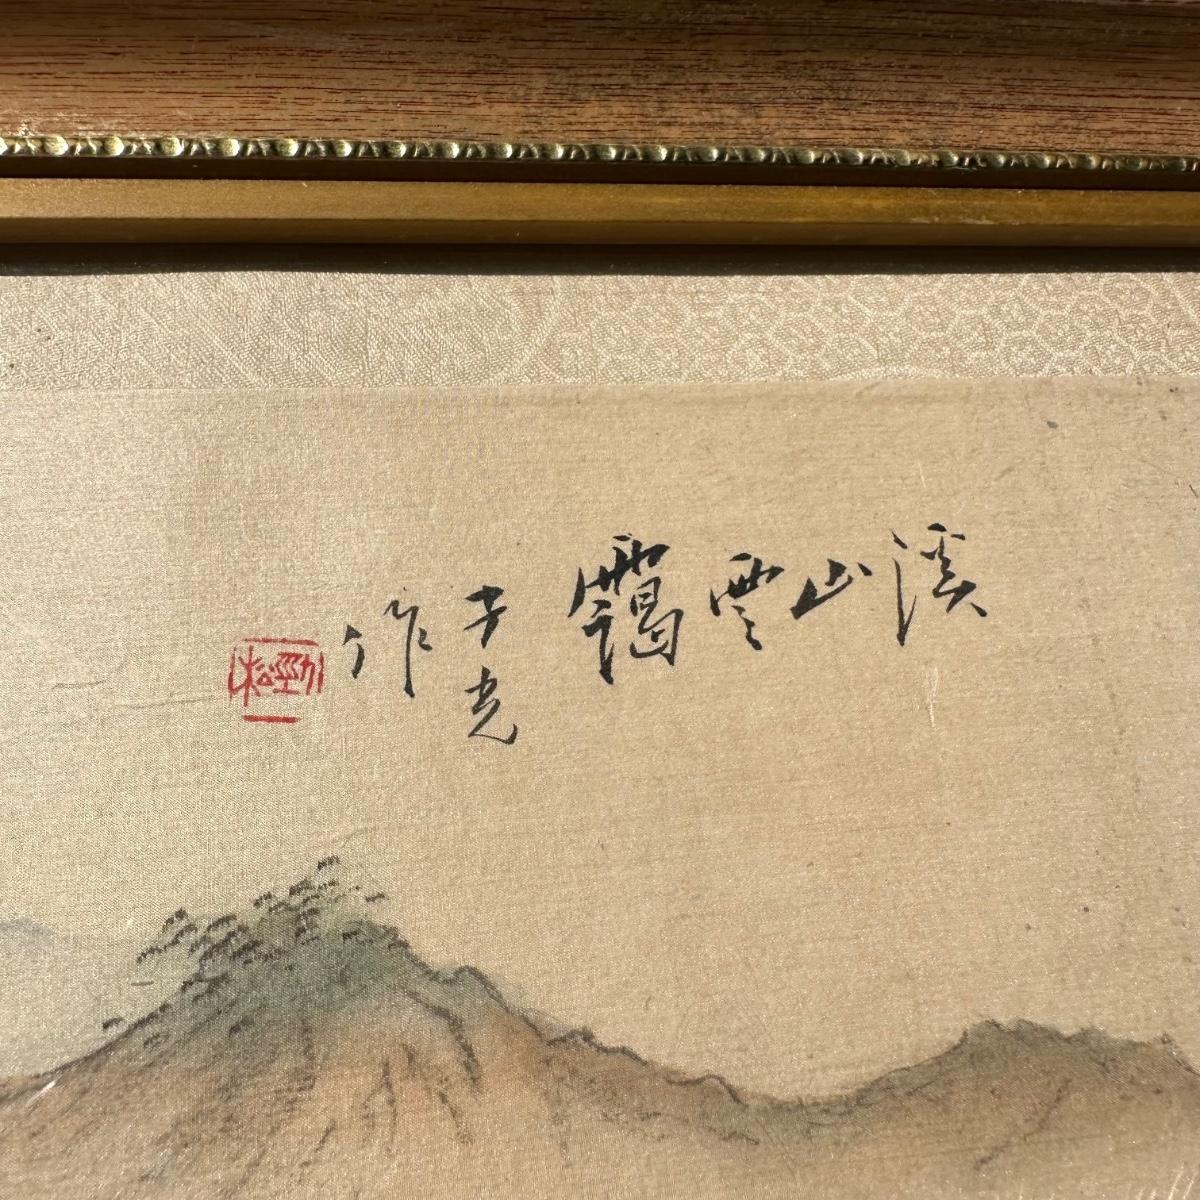 溪山雲靄
子光
作